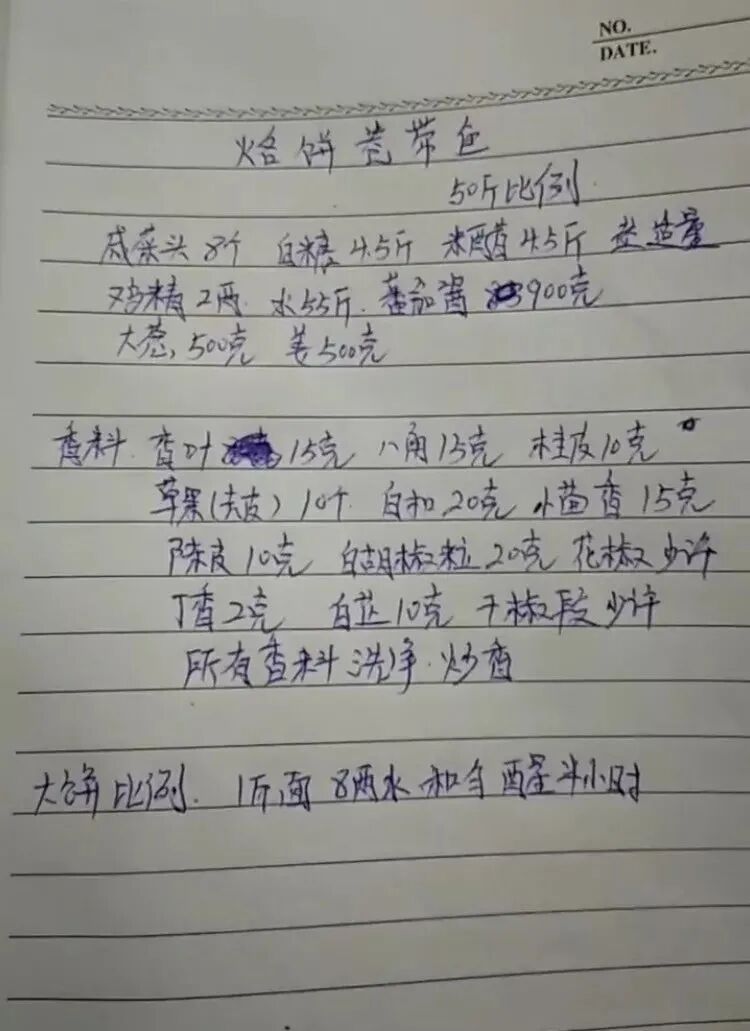 NO.
DATE.
烙饼卷带鱼
50斤比例
咸菜头8个 白糖4.5斤 米醋4.5斤 盐适量
鸡精2两. 水55斤. 蕃茄酱 900克
大葱,500克 姜500克
香料. 香叶 15克 八角15克 桂皮10克
草果(去皮)10个 白扣20克 小茴香15克
陈皮10克 白胡椒粒20克 花椒少许
丁香2克 白芷10克 干椒段少许
所有香料洗净.炒香
大饼比例. 1斤面 8两水 和匀 醒半小时